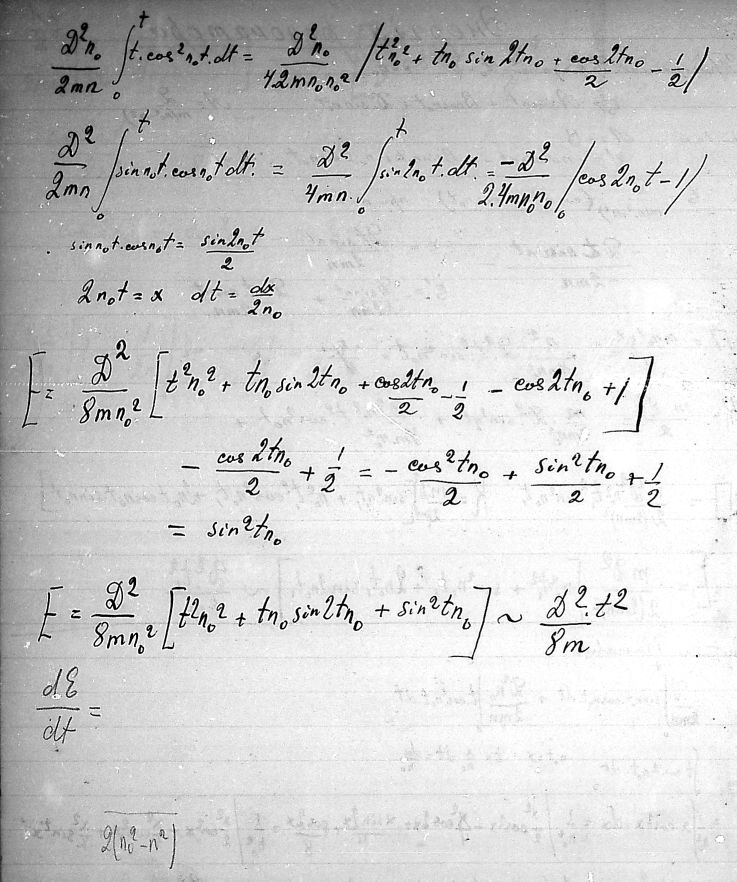 D²n₀/2mn ∫₀ᵗ t·cos²n₀t·dt = D²n₀/4·2mn₀n₀² /t²n₀² + tn₀ sin 2tn₀ + cos2tn₀/2 − 1/2/
D²/2mn ∫₀ᵗ sin n₀t·cos n₀t dt· = D²/4mn· ∫₀ᵗ sin 2n₀t·dt· = −D²/2·4mn₀n₀ /cos 2n₀t − 1/
sin n₀t·cos n₀t = sin2n₀t/2
2n₀t = x dt = dx/2n₀
E = D²/8mn₀² [t²n₀² + tn₀ sin 2tn₀ + cos2tn₀/2 − 1/2 − cos 2tn₀ + 1]
− cos 2tn₀/2 + 1/2 = − cos²tn₀/2 + sin²tn₀/2 + 1/2
= sin²tn₀
E = D²/8mn₀² [t²n₀² + tn₀ sin 2tn₀ + sin²tn₀] ~ D²·t²/8m
dE/dt =
2(n₀² − n²)